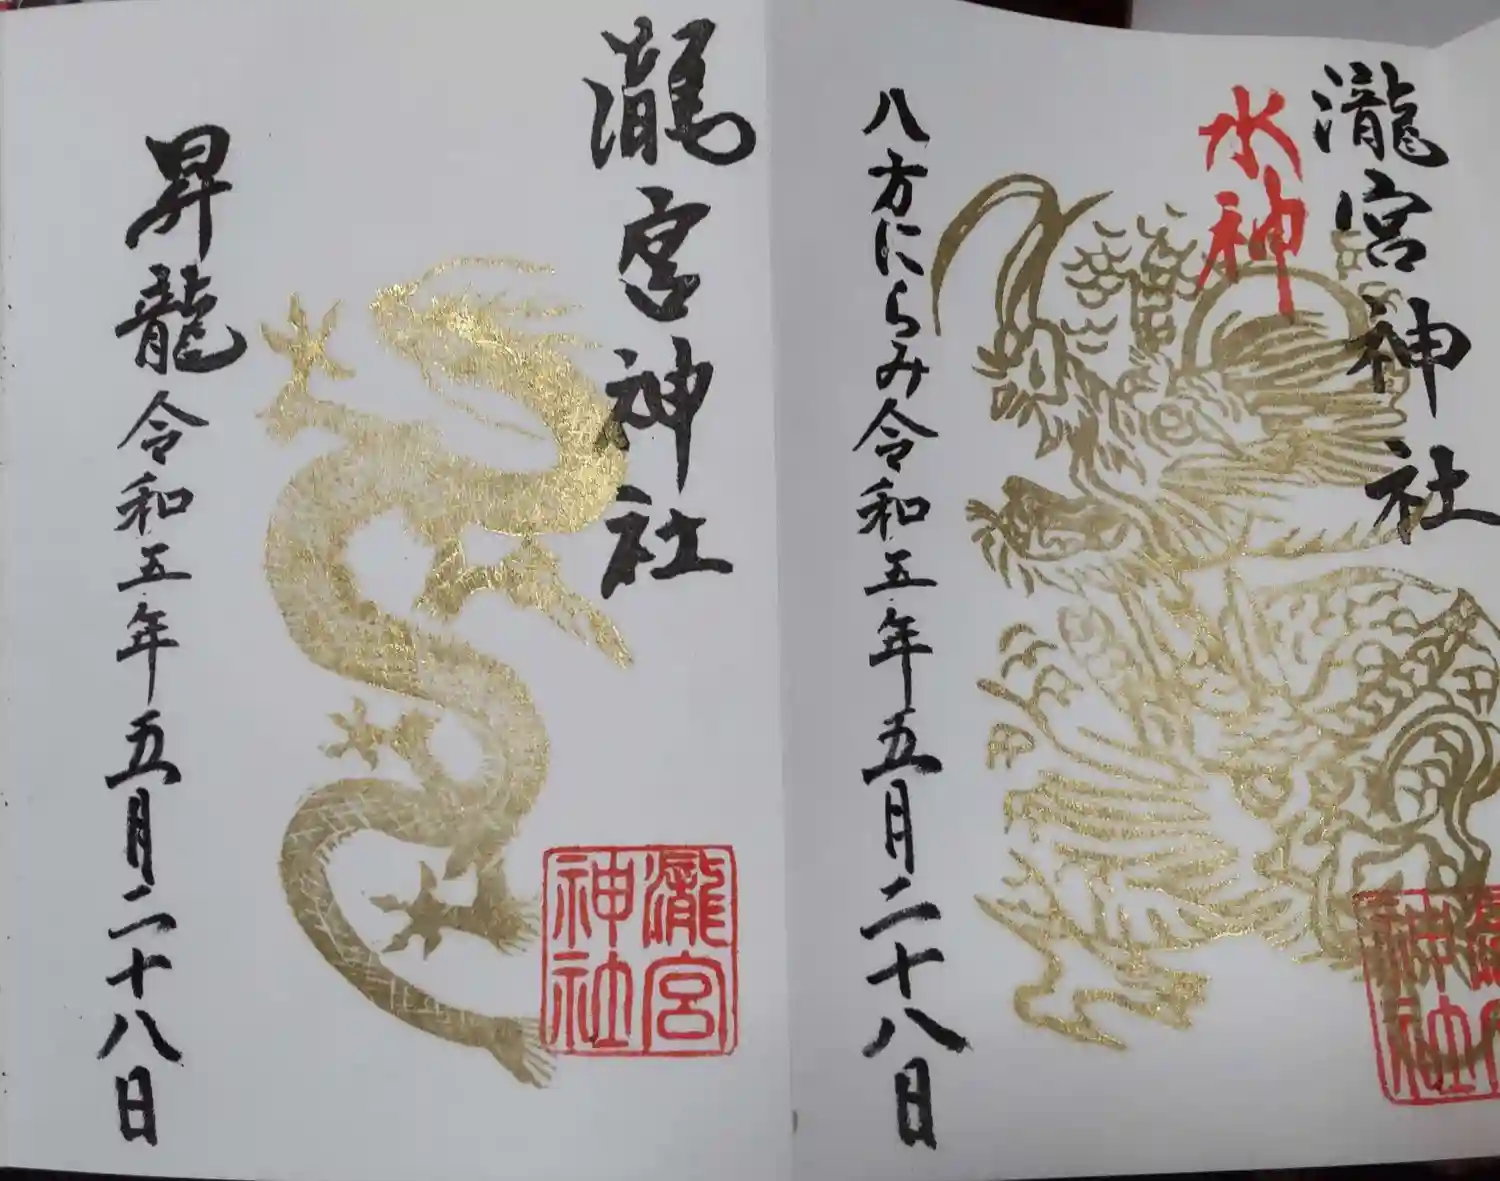 瀧宮神社
水神
八方にらみ令和五年五月二十八日
瀧宮神社
瀧宮神社
昇龍令和五年五月二十八日
瀧宮
神社